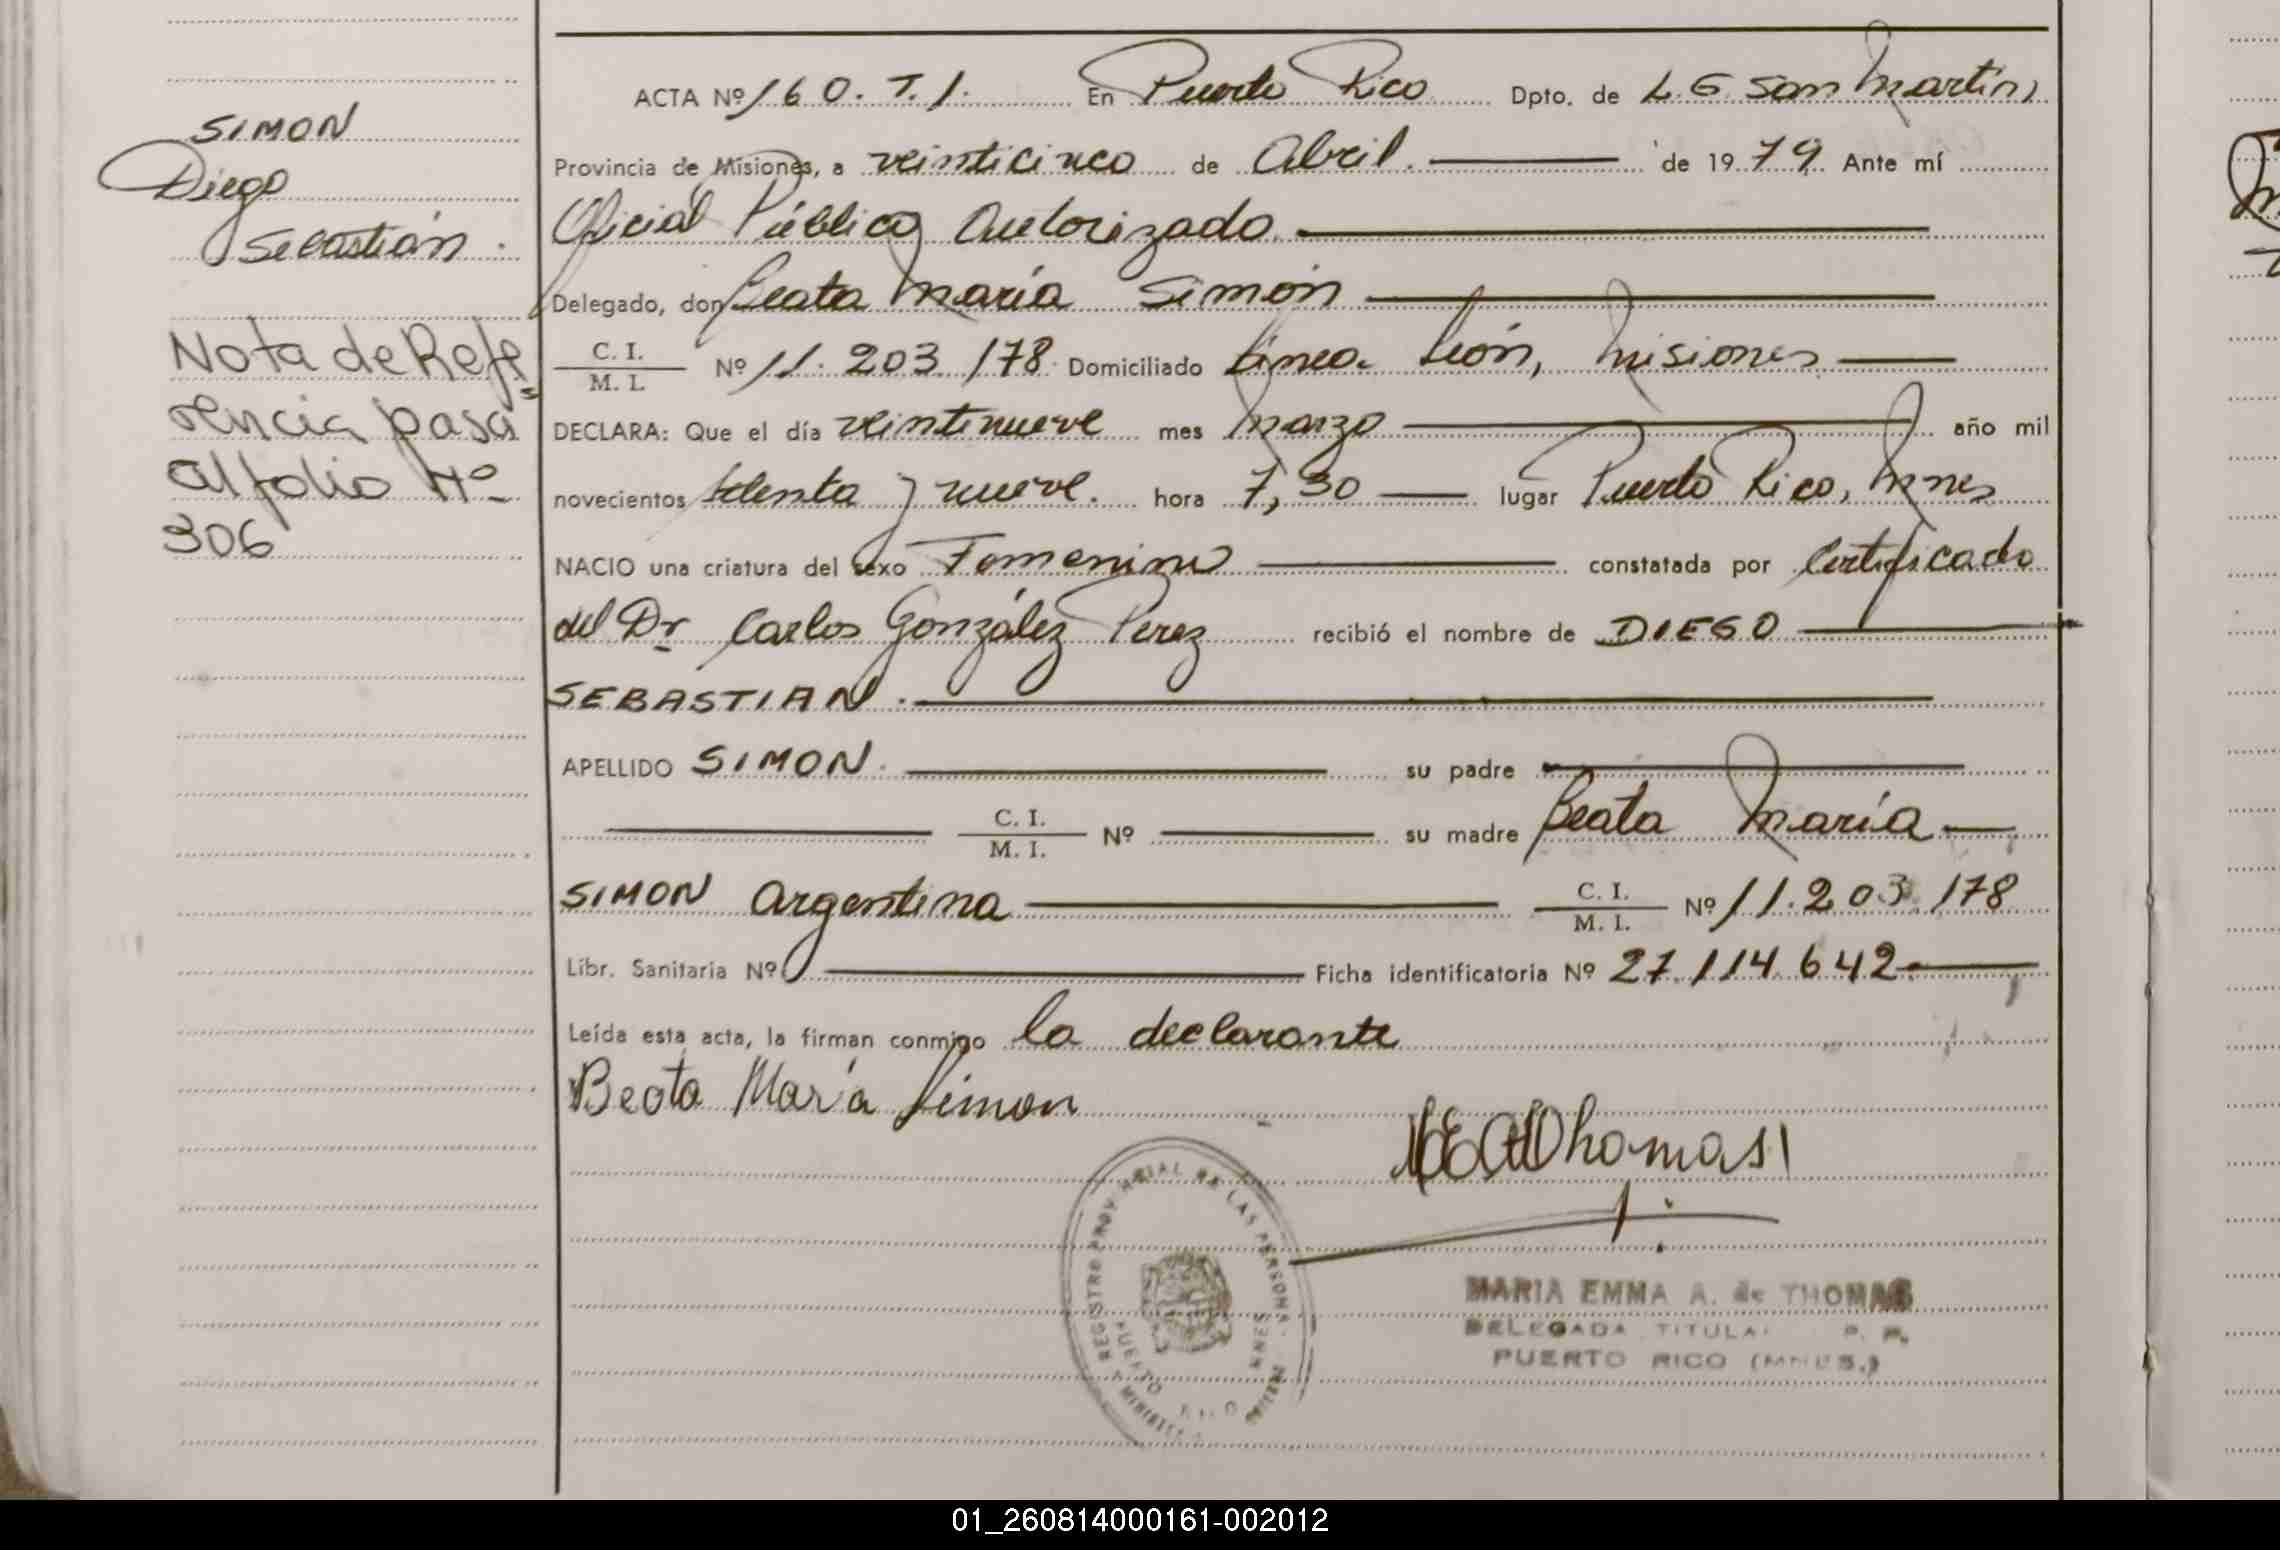 SIMON
Diego
Sebastián.
Nota de Refe=
rencia pasa
al folio Nº
306
ACTA Nº 160. T. I. En Puerto Rico Dpto. de L G San Martín,
Provincia de Misiones, a veinticinco de Abril. de 1979. Ante mí
Oficial Público Autorizado
Delegado, don Beata María Simón
C. I.
M. I. Nº 11.203.178. Domiciliado Línea León, Misiones
DECLARA: Que el día veintinueve mes Marzo año mil
novecientos setenta y nueve. hora 7,30 lugar Puerto Rico, Mnes
NACIO una criatura del sexo Femenino constatada por Certificado
del Dr Carlos González Perez recibió el nombre de DIEGO
SEBASTIAN.
APELLIDO SIMON. su padre
C. I.
M. I. Nº su madre Beata María
SIMON Argentina C. I.
M. I. Nº 11.203.178
Libr. Sanitaria Nº Ficha identificatoria Nº 27.114.642
Leída esta acta, la firman conmigo la declarante
Beata María Simon
Thomas
REGISTRO PROVINCIAL DE LAS PERSONAS
PUERTO RICO MNES
MARIA EMMA A. de THOMAS
DELEGADA TITULAR P. P.
PUERTO RICO (MNES.)
01_260814000161-002012